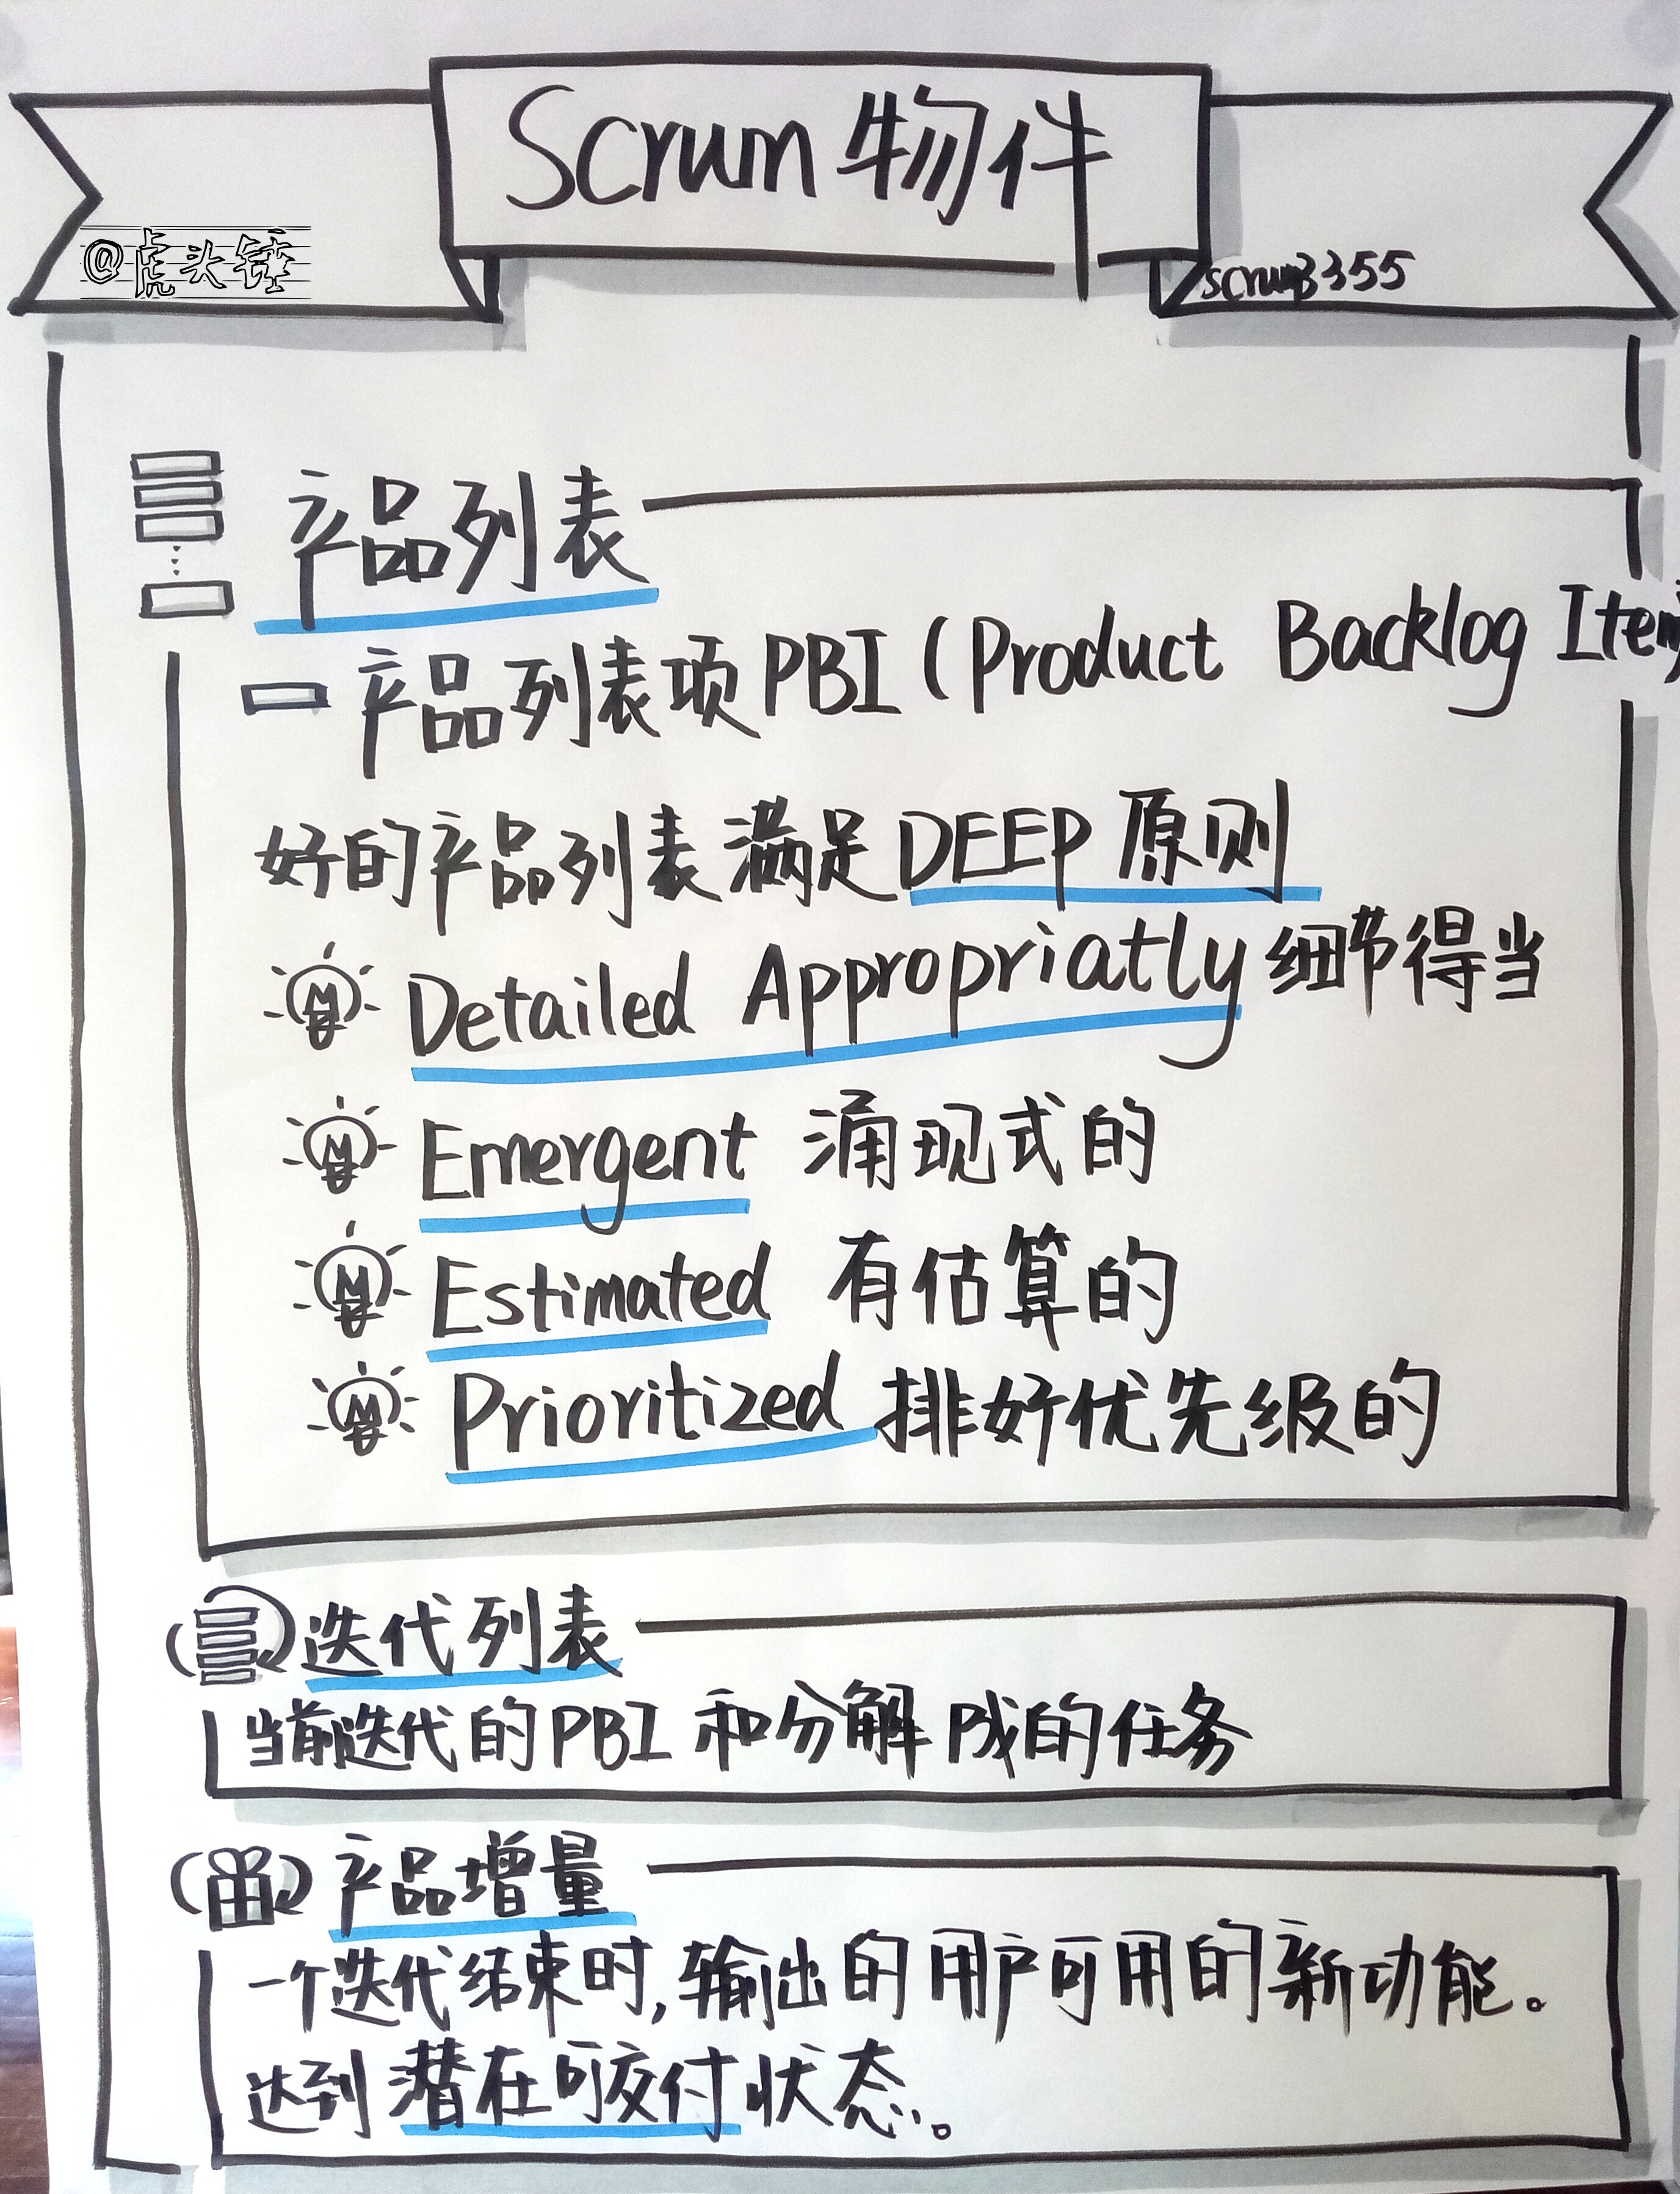 Scrum 物件
@虎头锤
scrum3355
产品列表
产品列表项 PBI (Product Backlog Item)
好的产品列表满足DEEP 原则
Detailed Appropriatly 细节得当
Emergent 涌现式的
Estimated 有估算的
Prioritized 排好优先级的
迭代列表
当前迭代的PBI 和分解成的任务
产品增量
一个迭代结束时,输出的用户可用的新功能。
达到潜在可交付状态。